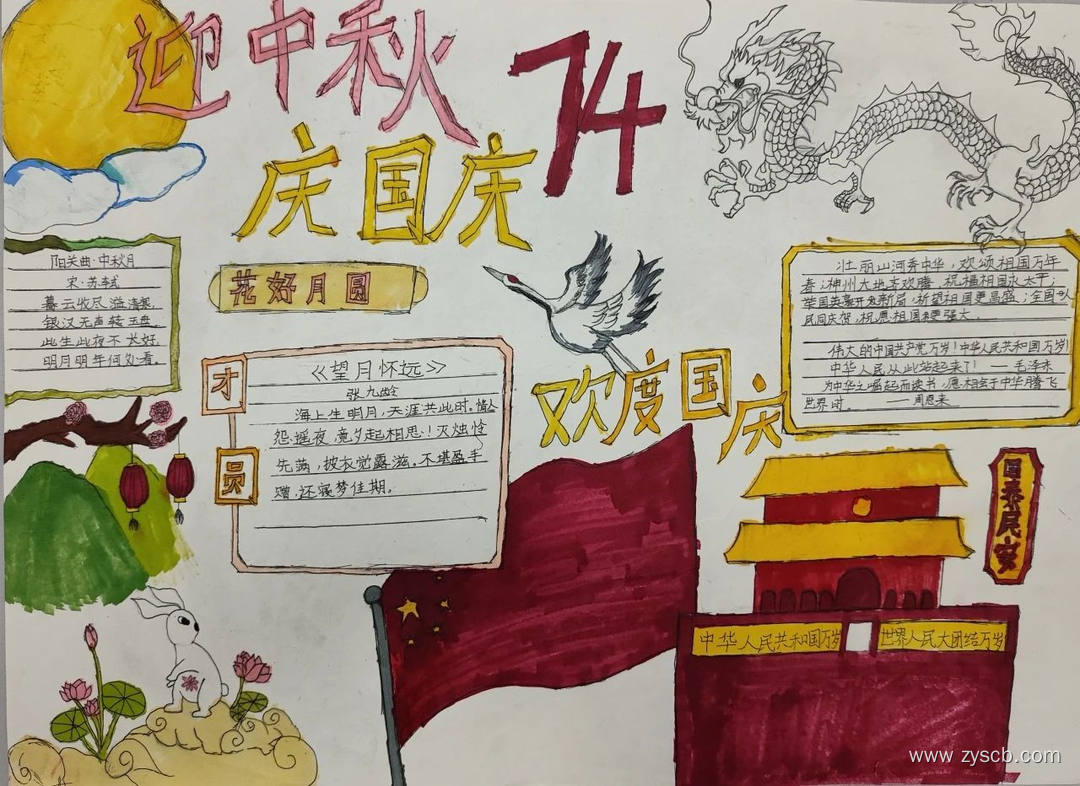 迎中秋
74
庆国庆
花好月圆
阳关曲·中秋月
宋·苏轼
暮云收尽溢清寒,
银汉无声转玉盘。
此生此夜不长好,
明月明年何处看。
才
员
《望月怀远》
张九龄
海上生明月,天涯共此时。情人
怨摇夜,竟夕起相思!灭烛怜
先满,披衣觉露滋。不堪盈手
赠,还寝梦佳期。
欢度国庆
壮丽山河秀中华,欢颂祖国万年
春;神州大地齐欢腾,祝福祖国永太平;
举国英豪开发新局,祈望祖国更昌盛;全国人
民同庆贺,祝愿祖国更强大。
伟大的中国共产党万岁!中华人民共和国万岁!
中华人民从此站起来了! —毛泽东
为中华之崛起而读书,愿相会于中华腾飞
世界时。 ——周恩来
国泰民安
中华人民共和国万岁
世界人民大团结万岁
www.zyscb.com